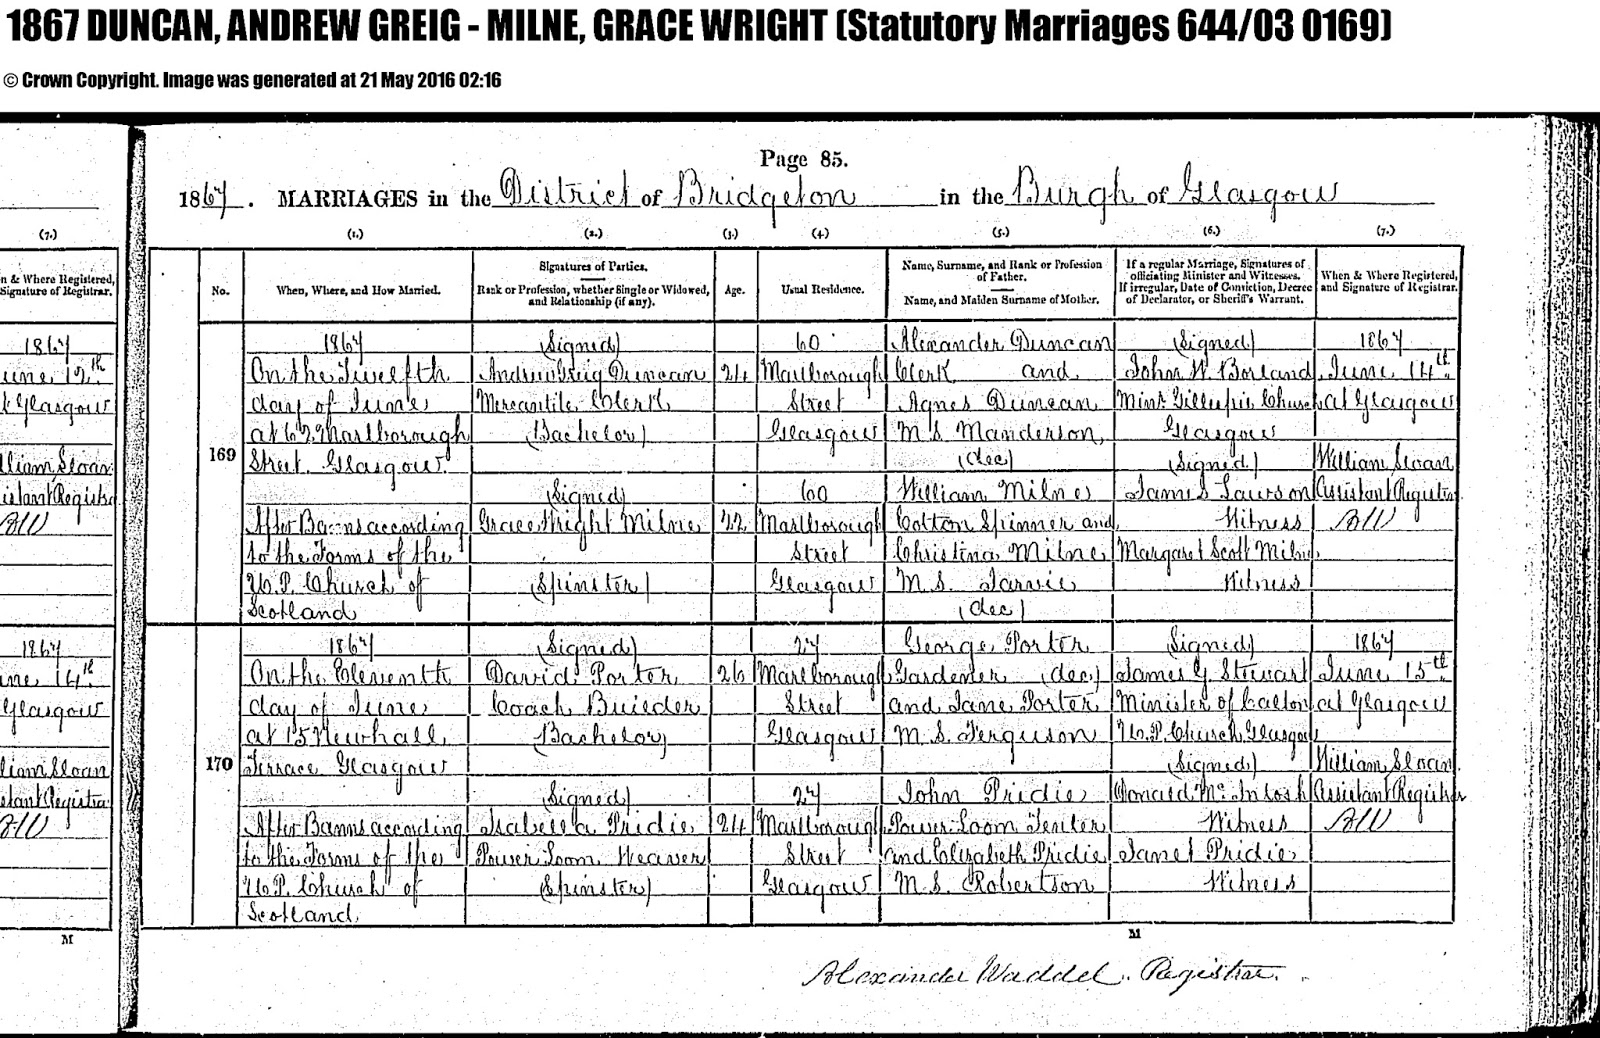 1867 DUNCAN, ANDREW GREIG - MILNE, GRACE WRIGHT (Statutory Marriages 644/03 0169)
© Crown Copyright. Image was generated at 21 May 2016 02:16
Page 85.
1867. MARRIAGES in the District of Bridgeton in the Burgh of Glasgow
(7.)
n & Where Registered,
Signature of Registrar.
1867
une 12th
t Glasgow
lliam Sloan
istant Registra
AW
1867
une 14th
Glasgow
liam Sloan
stant Registra
AW
M
(1.) (2.) (3.) (4.) (5.) (6.) (7.)
No.
When, Where, and How Married.
Signatures of Parties.
Rank or Profession, whether Single or Widowed,
and Relationship (if any).
Age.
Usual Residence.
Name, Surname, and Rank or Profession
of Father.
Name, and Maiden Surname of Mother.
If a regular Marriage, Signatures of
officiating Minister and Witnesses.
If irregular, Date of Conviction, Decree
of Declarator, or Sheriff's Warrant.
When & Where Registered,
and Signature of Registrar.
169
1867
On the Twelfth
day of June
at 62 Marlborough
Street Glasgow
After Banns according
to the Forms of the
U.P. Church of
Scotland
(Signed)
Andrew Greig Duncan
Mercantile Clerk
(Bachelor)
(Signed)
Grace Wright Milne
(Spinster)
24
22
60
Marlborough
Street
Glasgow
60
Marlborough
Street
Glasgow
Alexander Duncan
Clerk and
Agnes Duncan
M.S. Manderson
(dec)
William Milne
Cotton Spinner and
Christina Milne
M.S. Jarvie
(dec)
(Signed)
John W. Borland
Minr. Gillespie Church
Glasgow
(Signed)
James Lawson
Witness
Margaret Scott Milne
Witness
1867
June 14th
at Glasgow
William Sloan
Assistant Registrar
AW
170
1867
On the Eleventh
day of June
at 15 Newhall
Terrace Glasgow
After Banns according
to the Forms of the
U.P. Church of
Scotland
(Signed)
David Porter
Coach Builder
(Bachelor)
(Signed)
Isabella Pridie
Power Loom Weaver
(Spinster)
26
24
27
Marlborough
Street
Glasgow
27
Marlborough
Street
Glasgow
George Porter
Gardener (dec)
and Jane Porter
M.S. Ferguson
John Pridie
Power Loom Tenter
and Elizabeth Pridie
M.S. Robertson
(Signed)
James G. Stewart
Minister of Calton
U.P. Church Glasgow
(Signed)
Donald McIntosh
Witness
Janet Pridie
Witness
1867
June 15th
at Glasgow
William Sloan
Assistant Registrar
AW
M
Alexander Waddel. Registrar.